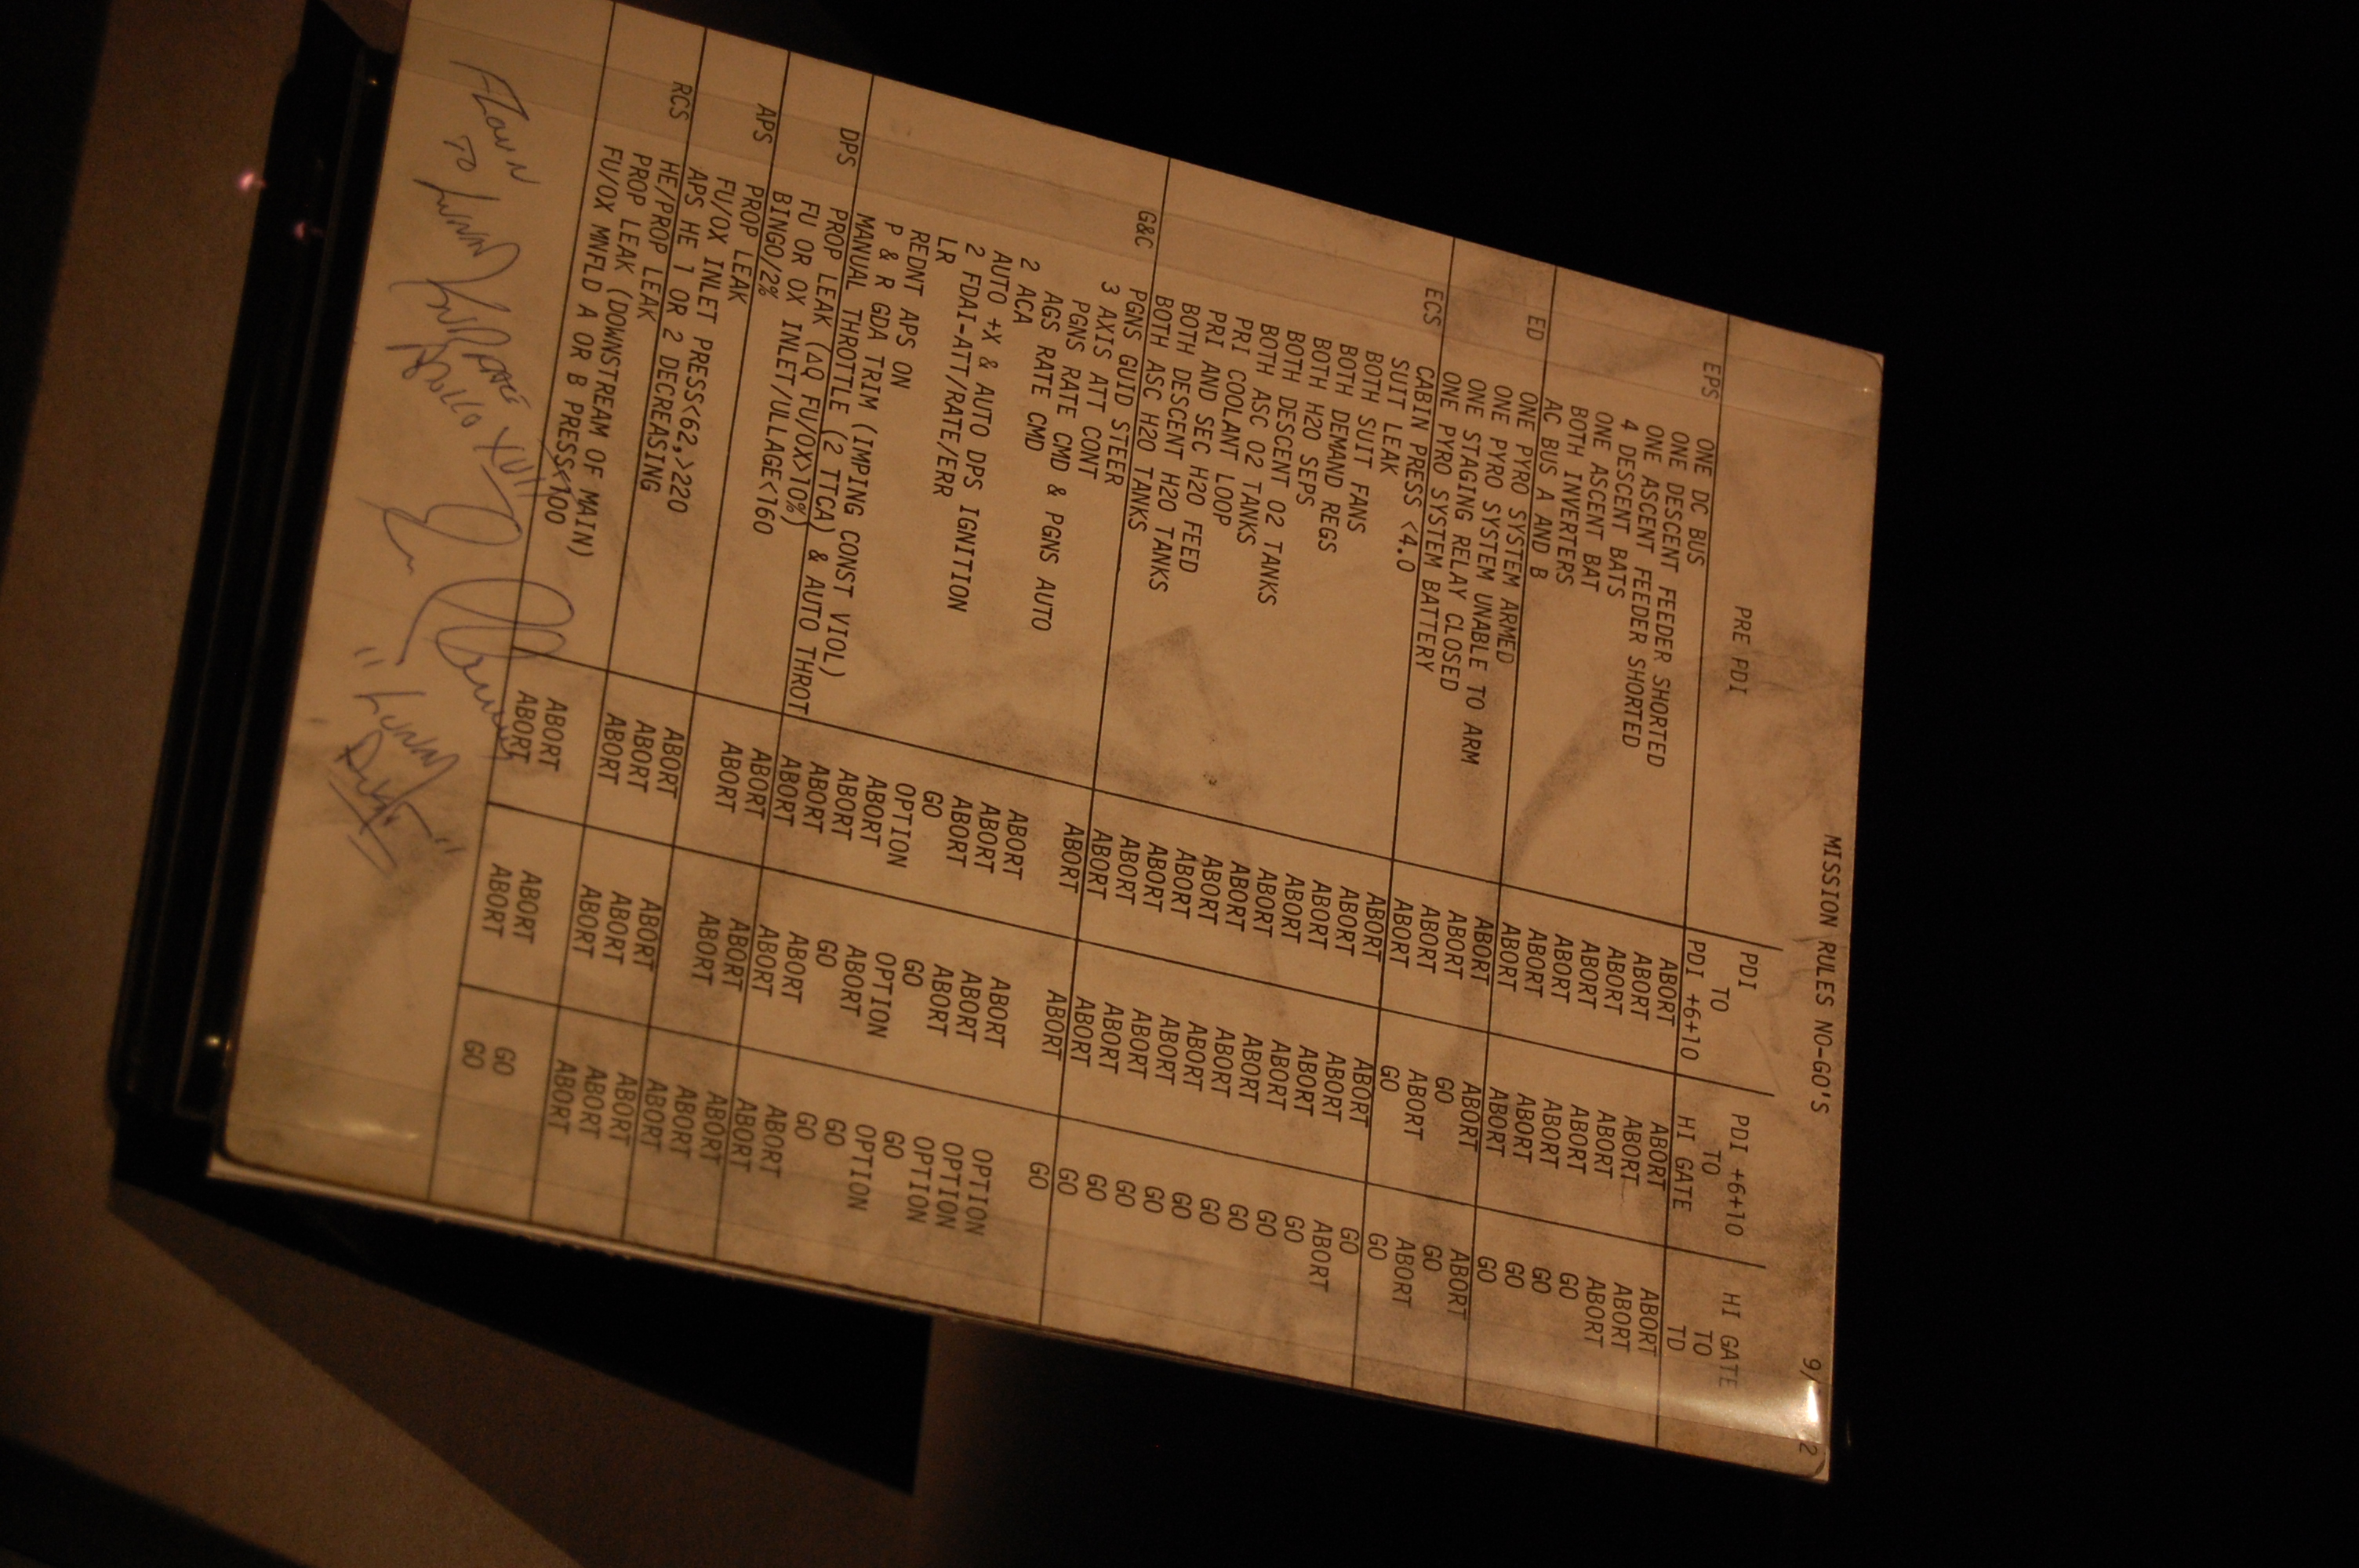 MISSION RULES NO-GO'S 9/ 2
PRE PDI PDI TO PDI +6+10 PDI +6+10 TO HI GATE HI GATE TO TD
EPS ONE DC BUS ABORT ABORT ABORT
ONE DESCENT FEEDER SHORTED ABORT ABORT ABORT
ONE ASCENT FEEDER SHORTED ABORT ABORT ABORT
4 DESCENT BATS ABORT ABORT GO
ONE ASCENT BAT ABORT ABORT GO
BOTH INVERTERS ABORT ABORT GO
AC BUS A AND B ABORT ABORT GO
ED ONE PYRO SYSTEM ARMED ABORT ABORT ABORT
ONE PYRO SYSTEM UNABLE TO ARM ABORT GO GO
ONE STAGING RELAY CLOSED ABORT ABORT ABORT
ONE PYRO SYSTEM BATTERY ABORT GO GO
ECS CABIN PRESS <4.0 ABORT ABORT GO
SUIT LEAK ABORT ABORT ABORT
BOTH SUIT FANS ABORT ABORT GO
BOTH DEMAND REGS ABORT ABORT GO
BOTH H2O SEPS ABORT ABORT GO
BOTH DESCENT O2 TANKS ABORT ABORT GO
BOTH ASC O2 TANKS ABORT ABORT GO
PRI COOLANT LOOP ABORT ABORT GO
PRI AND SEC H2O FEED ABORT ABORT GO
BOTH DESCENT H2O TANKS ABORT ABORT GO
BOTH ASC H2O TANKS ABORT ABORT GO
G&C PGNS GUID STEER ABORT ABORT GO
3 AXIS ATT CONT
PGNS RATE CMD & PGNS AUTO ABORT ABORT OPTION
AGS RATE CMD ABORT ABORT OPTION
2 ACA ABORT ABORT OPTION
AUTO +X & AUTO DPS IGNITION GO GO GO
2 FDAI-ATT/RATE/ERR OPTION OPTION OPTION
LR ABORT ABORT GO
REDNT APS ON ABORT GO GO
P & R GDA TRIM (IMPING CONST VIOL) ABORT ABORT ABORT
MANUAL THROTTLE (2 TTCA) & AUTO THROT ABORT ABORT ABORT
DPS PROP LEAK (4Q FU/OX>10%) ABORT ABORT ABORT
FU OR OX INLET/ULLAGE<160 ABORT ABORT ABORT
BINGO/2% ABORT
APS PROP LEAK ABORT ABORT ABORT
FU/OX INLET PRESS<62,>220 ABORT ABORT ABORT
APS HE 1 OR 2 DECREASING ABORT ABORT ABORT
RCS HE/PROP LEAK
PROP LEAK (DOWNSTREAM OF MAIN) ABORT ABORT GO
FU/OX MNFLD A OR B PRESS<100 ABORT ABORT GO
FLOWN
TO LUNAR SURFACE
APOLLO XVII
"LUNAR
DUST"